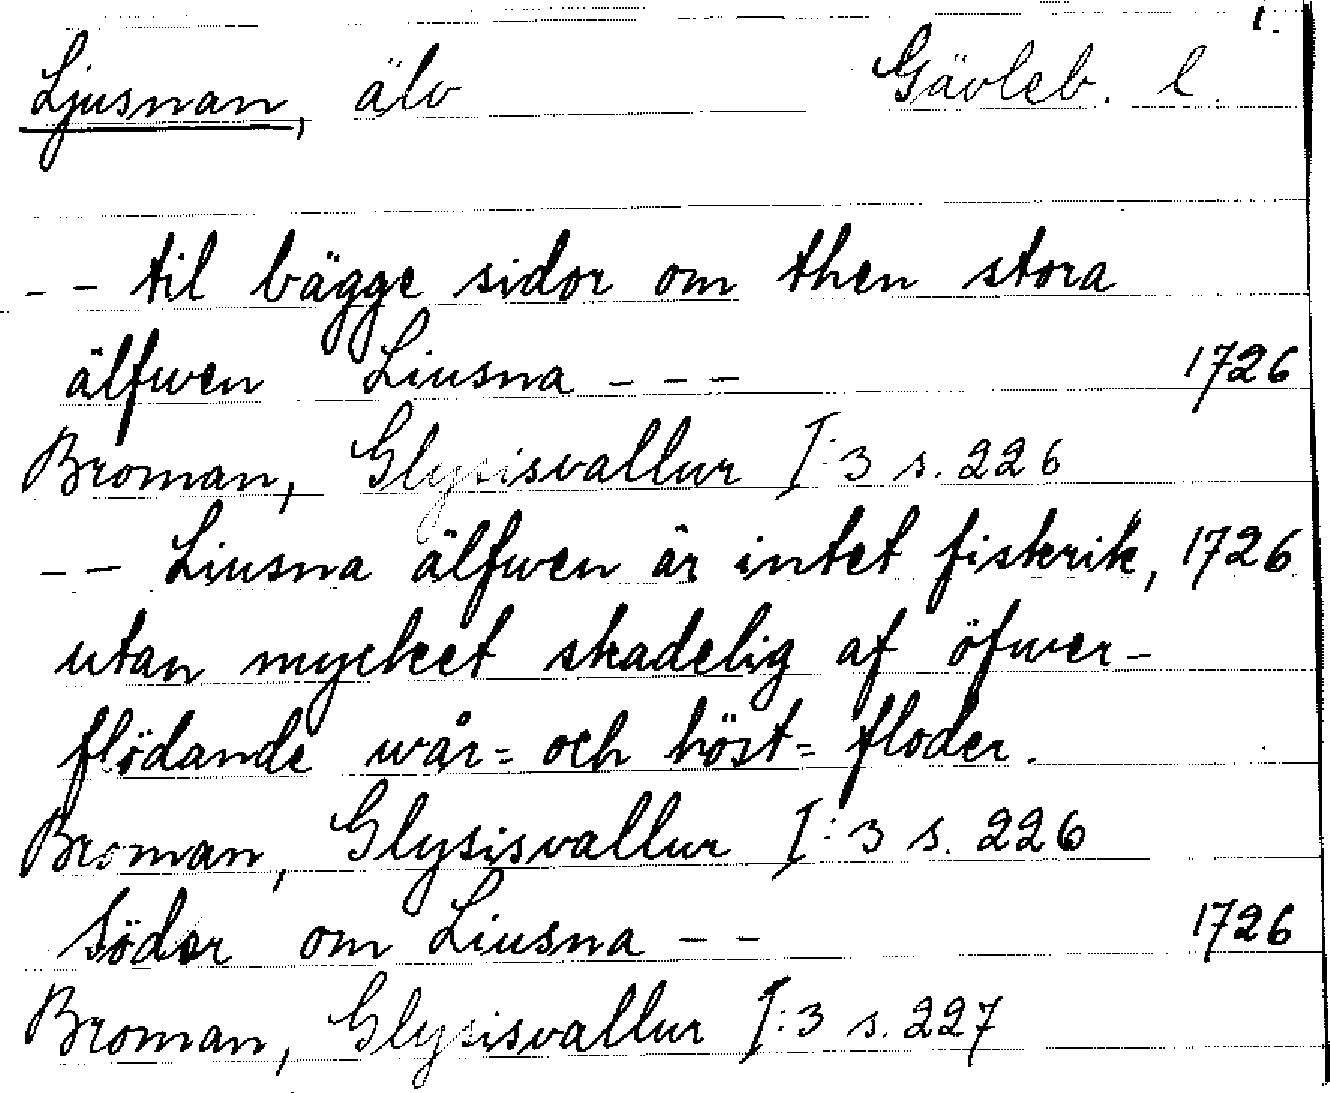 1.
Ljusnan, älv Gävleb. l.
- - til bägge sidor om then stora
älfwen Liusna - - - 1726
Broman, Glysisvallur I:3 s. 226
- - Liusna älfwen är intet fiskrik, 1726
utan mycket skadelig af öfwer-
flödande wår= och höst= floder.
Broman, Glysisvallur I:3 s. 226
Söder om Liusna - - 1726
Broman, Glysisvallur I:3 s. 227